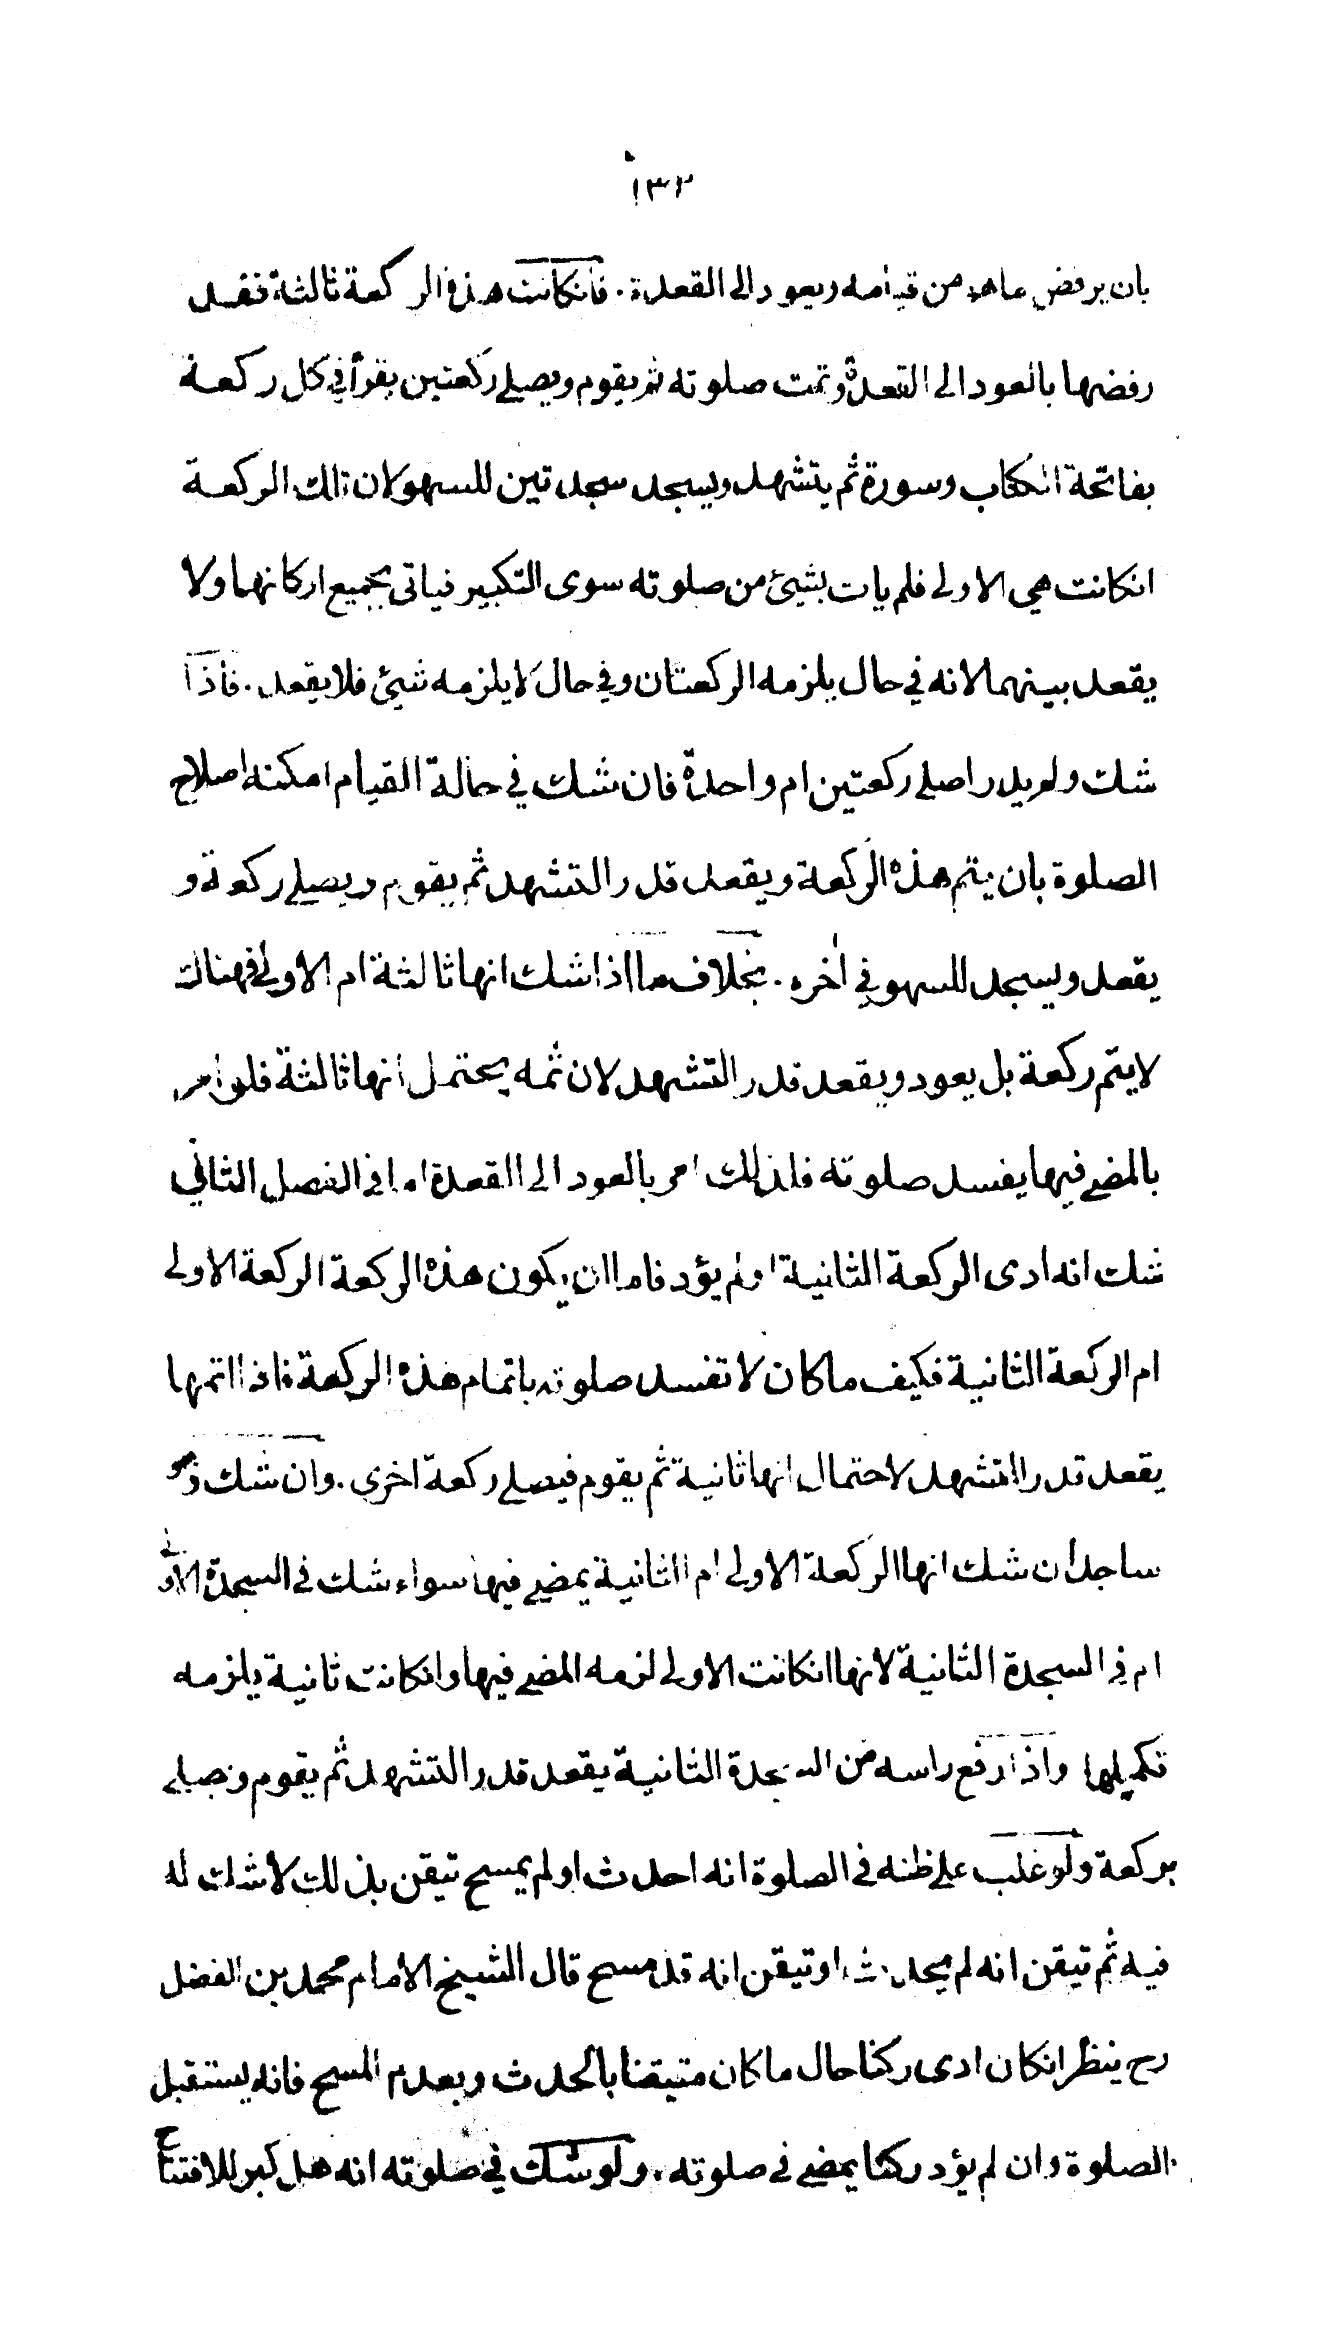 ١٣٢
بان يرفض ماهو من قيامه ويعود الى القعدة . فانكانت هذه الركعة ثالثة فقد
رفضها بالعود الى القعدة وتمت صلوته ثم يقوم ويصلي ركعتين يقرأ في كل ركعة
بفاتحة الكتاب وسورة ثم يتشهد ويسجد سجدتين للسهو لان تلك الركعة
انكانت هي الاولى فلم يات بشيئ من صلوته سوى التكبير فياتى بجميع اركانهما ولا
يقعد بينهما لانه في حال يلزمه الركعتان وفي حال لا يلزمه شيئ فلا يقعد . فاذا
شك ولم يدر اصلي ركعتين ام واحدة فان شك في حالة القيام امكنه اصلاح
الصلوة بان يتم هذه الركعة ويقعد قدر التشهد ثم يقوم ويصلي ركعة و
يقعد ويسجد للسهو في اخره . بخلاف ما اذا شك انها ثالثة ام الاولى فهناك
لا يتم ركعة بل يعود ويقعد قدر التشهد لان ثمه يحتمل انها ثالثة فلو امر
بالمضي فيها يفسد صلوته فلذلك امر بالعود الى القعدة اما في الفصل الثاني
شك انه ادى الركعة الثانية او لم يؤد فاما ان يكون هذه الركعة الركعة الاولى
ام الركعة الثانية فكيف ما كان لا تفسد صلوته باتمام هذه الركعة فاذا اتمها
يقعد قدر التشهد لاحتمال انها ثانية ثم يقوم فيصلي ركعة اخرى . وان شك وهو
ساجد ان شك انها الركعة الاولى ام الثانية يمضي فيها سواء شك في السجدة الاولى
ام في السجدة الثانية لانها انكانت الاولى لزمه المضي فيها وانكانت ثانية يلزمه
تكميلها واذا رفع راسه من السجدة الثانية يقعد قدر التشهد ثم يقوم ويصلي
بركعة ولو غلب على ظنه في الصلوة انه احدث او لم يمسح تيقن بذلك لا شك له
فيه ثم تيقن انه لم يحدث او تيقن انه قد مسح قال الشيخ الامام محمد بن الفضل
رح ينظر انكان ادى ركنا حال ما كان متيقنا بالحدث وبعدم المسح فانه يستقبل
الصلوة وان لم يؤد ركنا يمضي في صلوته . ولو شك في صلوته انه هل كبر للافتتاح